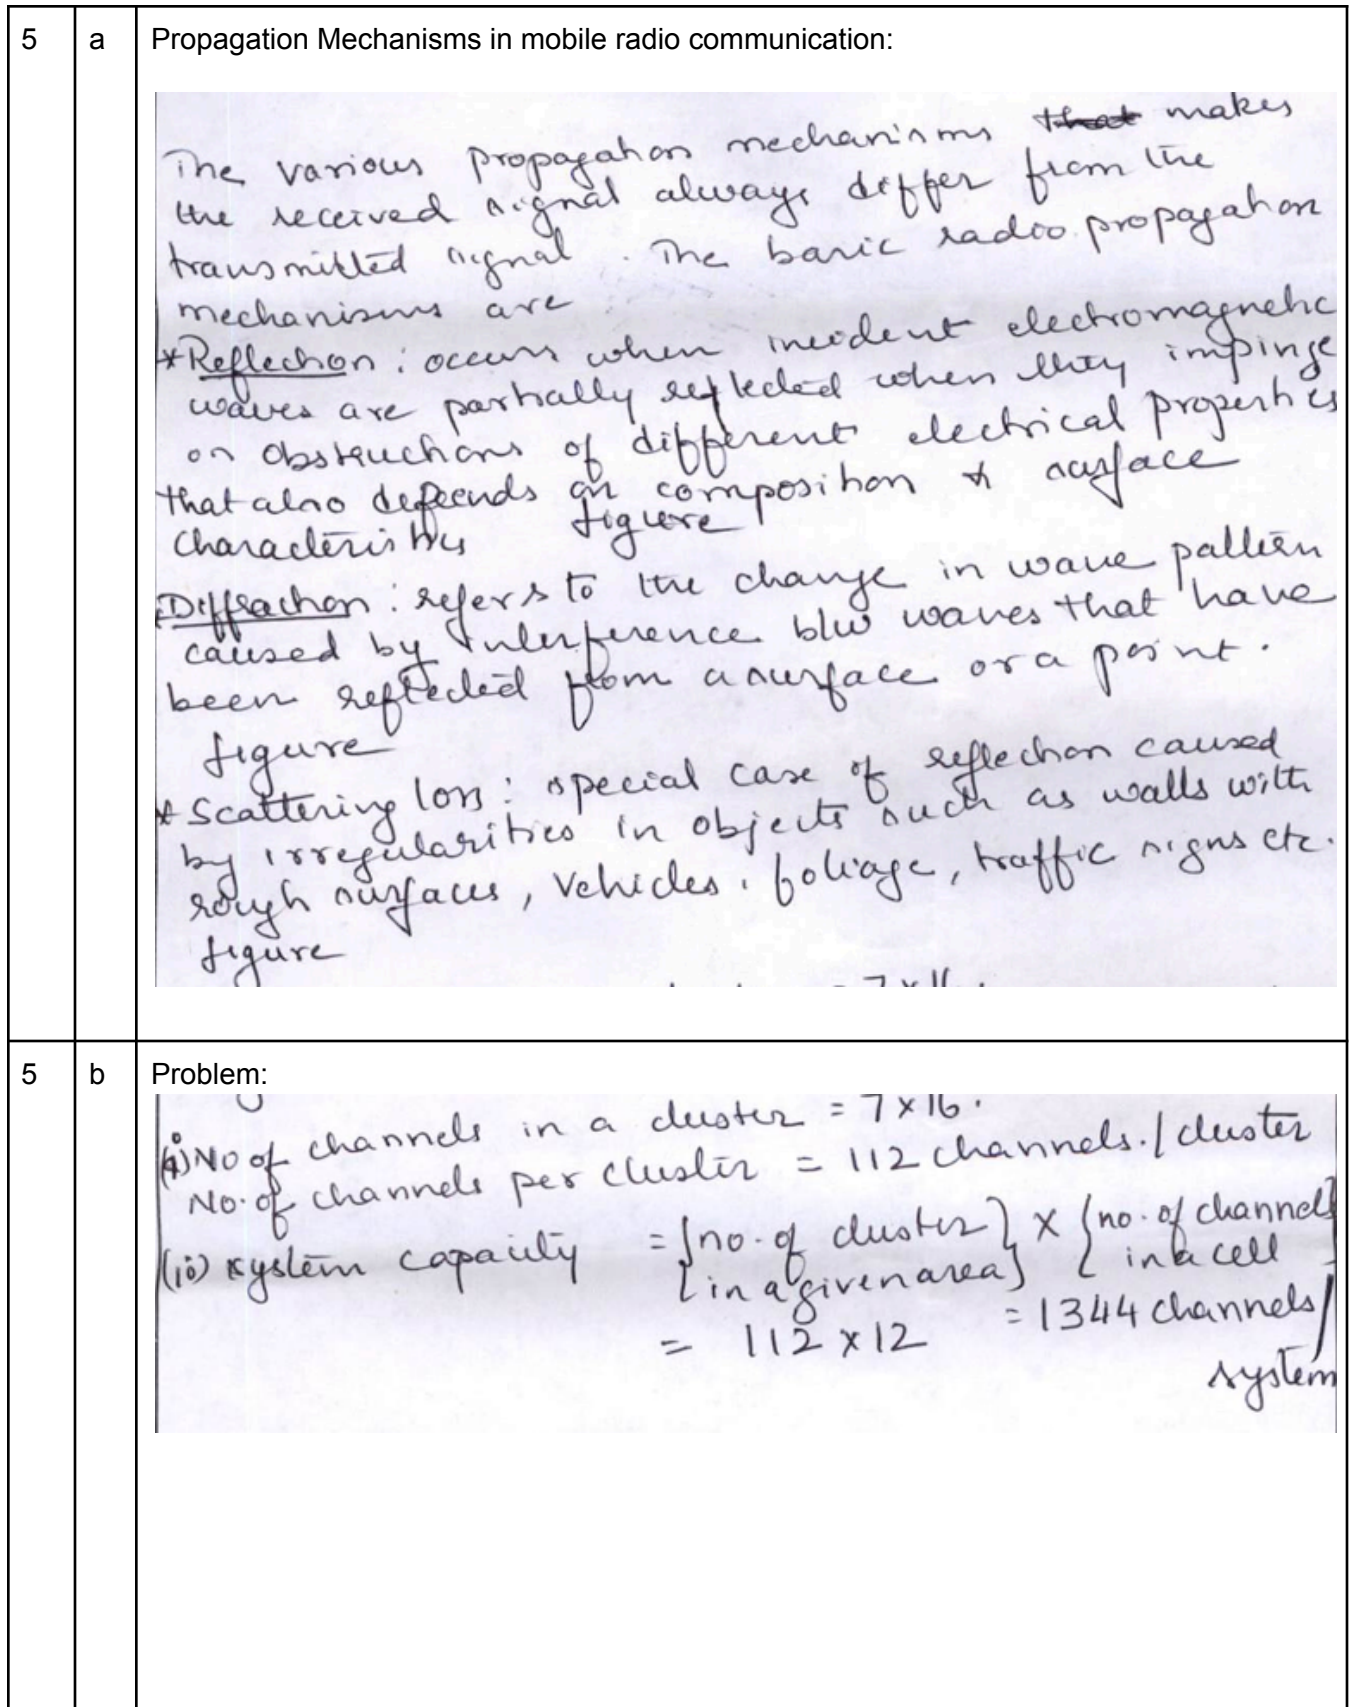 5 a Propagation Mechanisms in mobile radio communication:
The various propagation mechanisms that makes
the received signal always differ from the
transmitted signal. The basic radio propagation
mechanisms are
*Reflection: occurs when incident electromagnetic
waves are partially reflected when they impinge
on obstructions of different electrical properties
that also depends on composition & surface
characteristics figure
Diffraction: refers to the change in wave pattern
caused by interference b/w waves that have
been reflected from a surface or a point.
figure
*Scattering loss: special case of reflection caused
by irregularities in objects such as walls with
rough surfaces, vehicles, foliage, traffic signs etc.
figure
= 7x16.
5 b Problem:
(i) No of channels in a cluster = 7x16.
No. of channels per cluster = 112 channels./cluster
(ii) system capacity = {no. of cluster in a given area} x {no. of channels in a cell}
= 112 x 12 = 1344 channels/
system